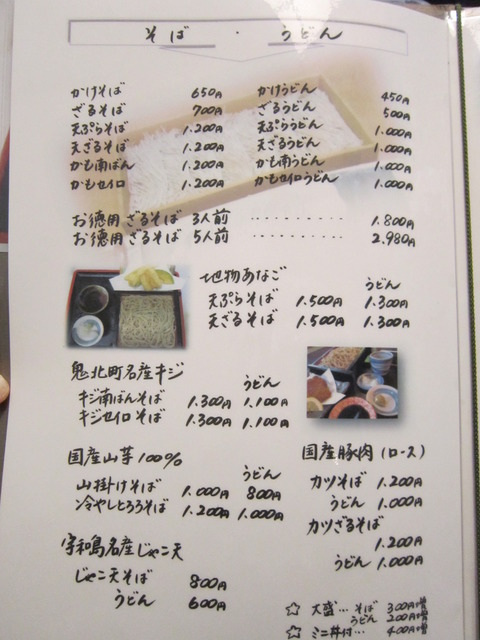 そば ・ うどん
かけそば 650円 かけうどん 450円
ざるそば 700円 ざるうどん 500円
天ぷらそば 1.200円 天ぷらうどん 1.000円
天ざるそば 1.200円 天ざるうどん 1.000円
かも南ばん 1.200円 かも南うどん 1.000円
かもセイロ 1.200円 かもセイロうどん 1.000円
お徳用 ざるそば 3人前 ………… 1.800円
お徳用 ざるそば 5人前 ………… 2.980円
地物あなご うどん
天ぷらそば 1.500円 1.300円
天ざるそば 1.500円 1.300円
鬼北町名産キジ うどん
キジ南ばんそば 1.300円 1.100円
キジセイロそば 1.300円 1.100円
国産山芋100% うどん
山掛けそば 1.000円 800円
冷やしとろろそば 1.200円 1.000円
宇和島名産じゃこ天
じゃこ天そば 800円
うどん 600円
国産豚肉(ロース)
カツそば 1.200円
うどん 1.000円
カツざるそば
1.200円
うどん 1.000円
☆ 大盛… そば 300円増
うどん 200円増
☆ ミニ丼付… 400円増